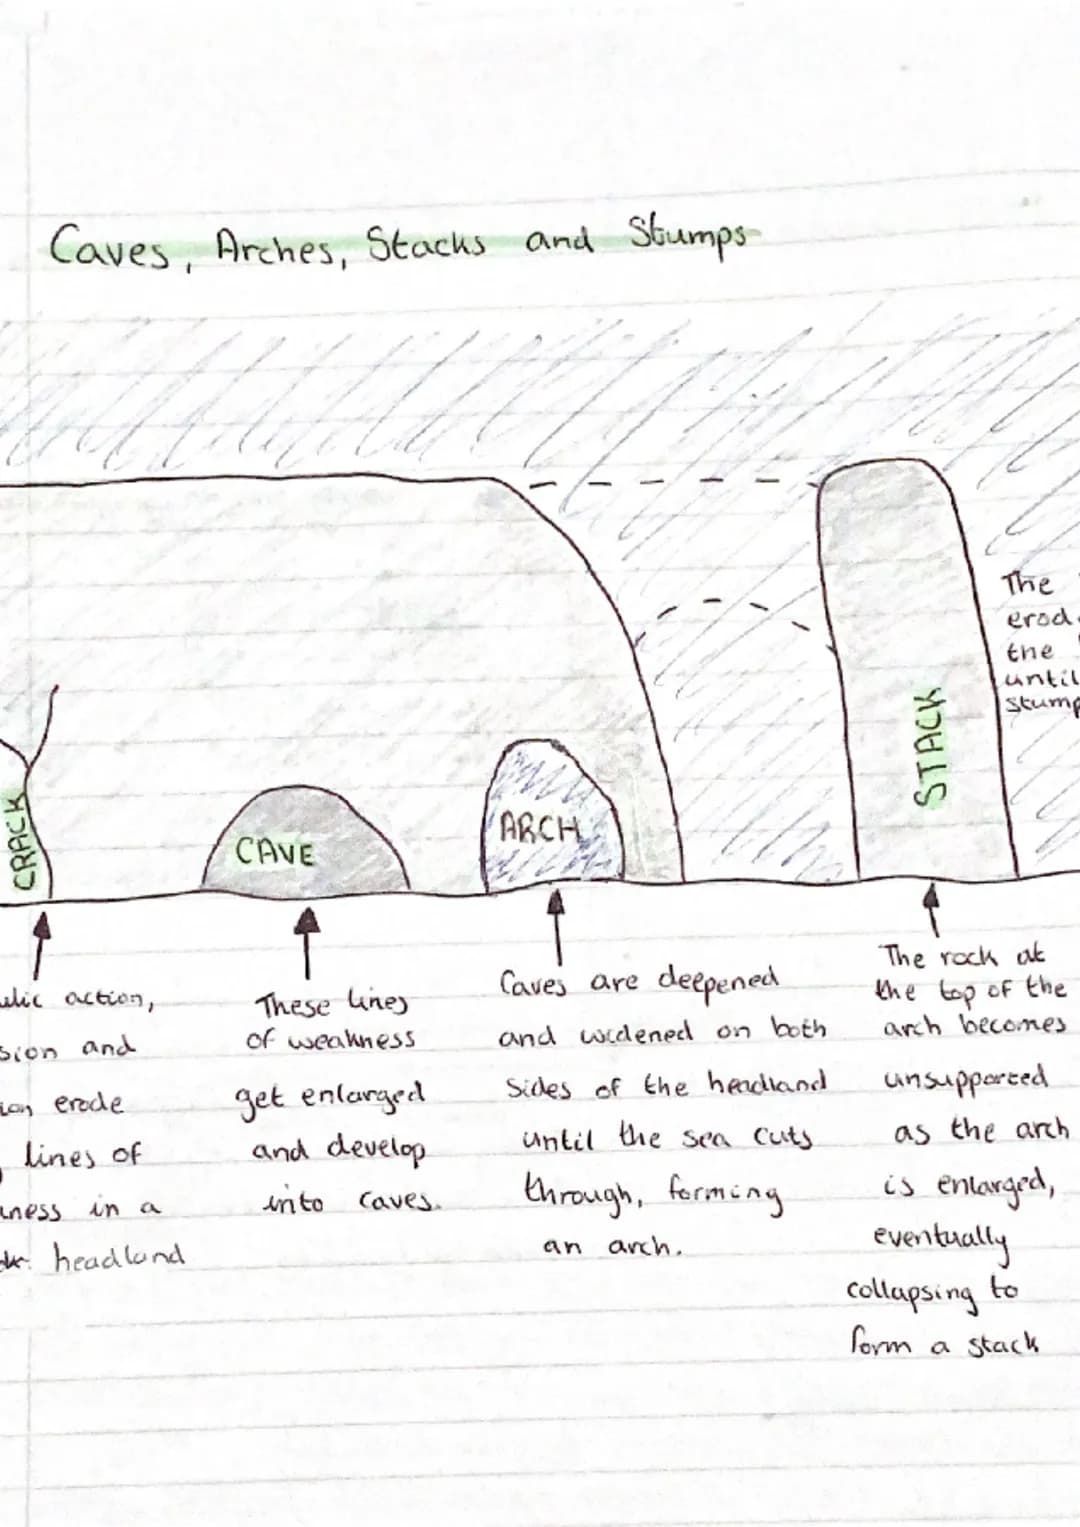 Caves, Arches, Stacks and Stumps
The
erod
the
until
stump
STACK
CRACK
CAVE
ARCH
action,
and
erode
lines of
in a
headland
These lines
of weakness
get enlarged
and develop
into caves.
Caves are deepened
and widened on both
sides of the headland
until the sea cuts
through, forming
an arch.
The rock at
the top of the
arch becomes
unsupported
as the arch
is enlarged,
eventually
collapsing to
form a stack